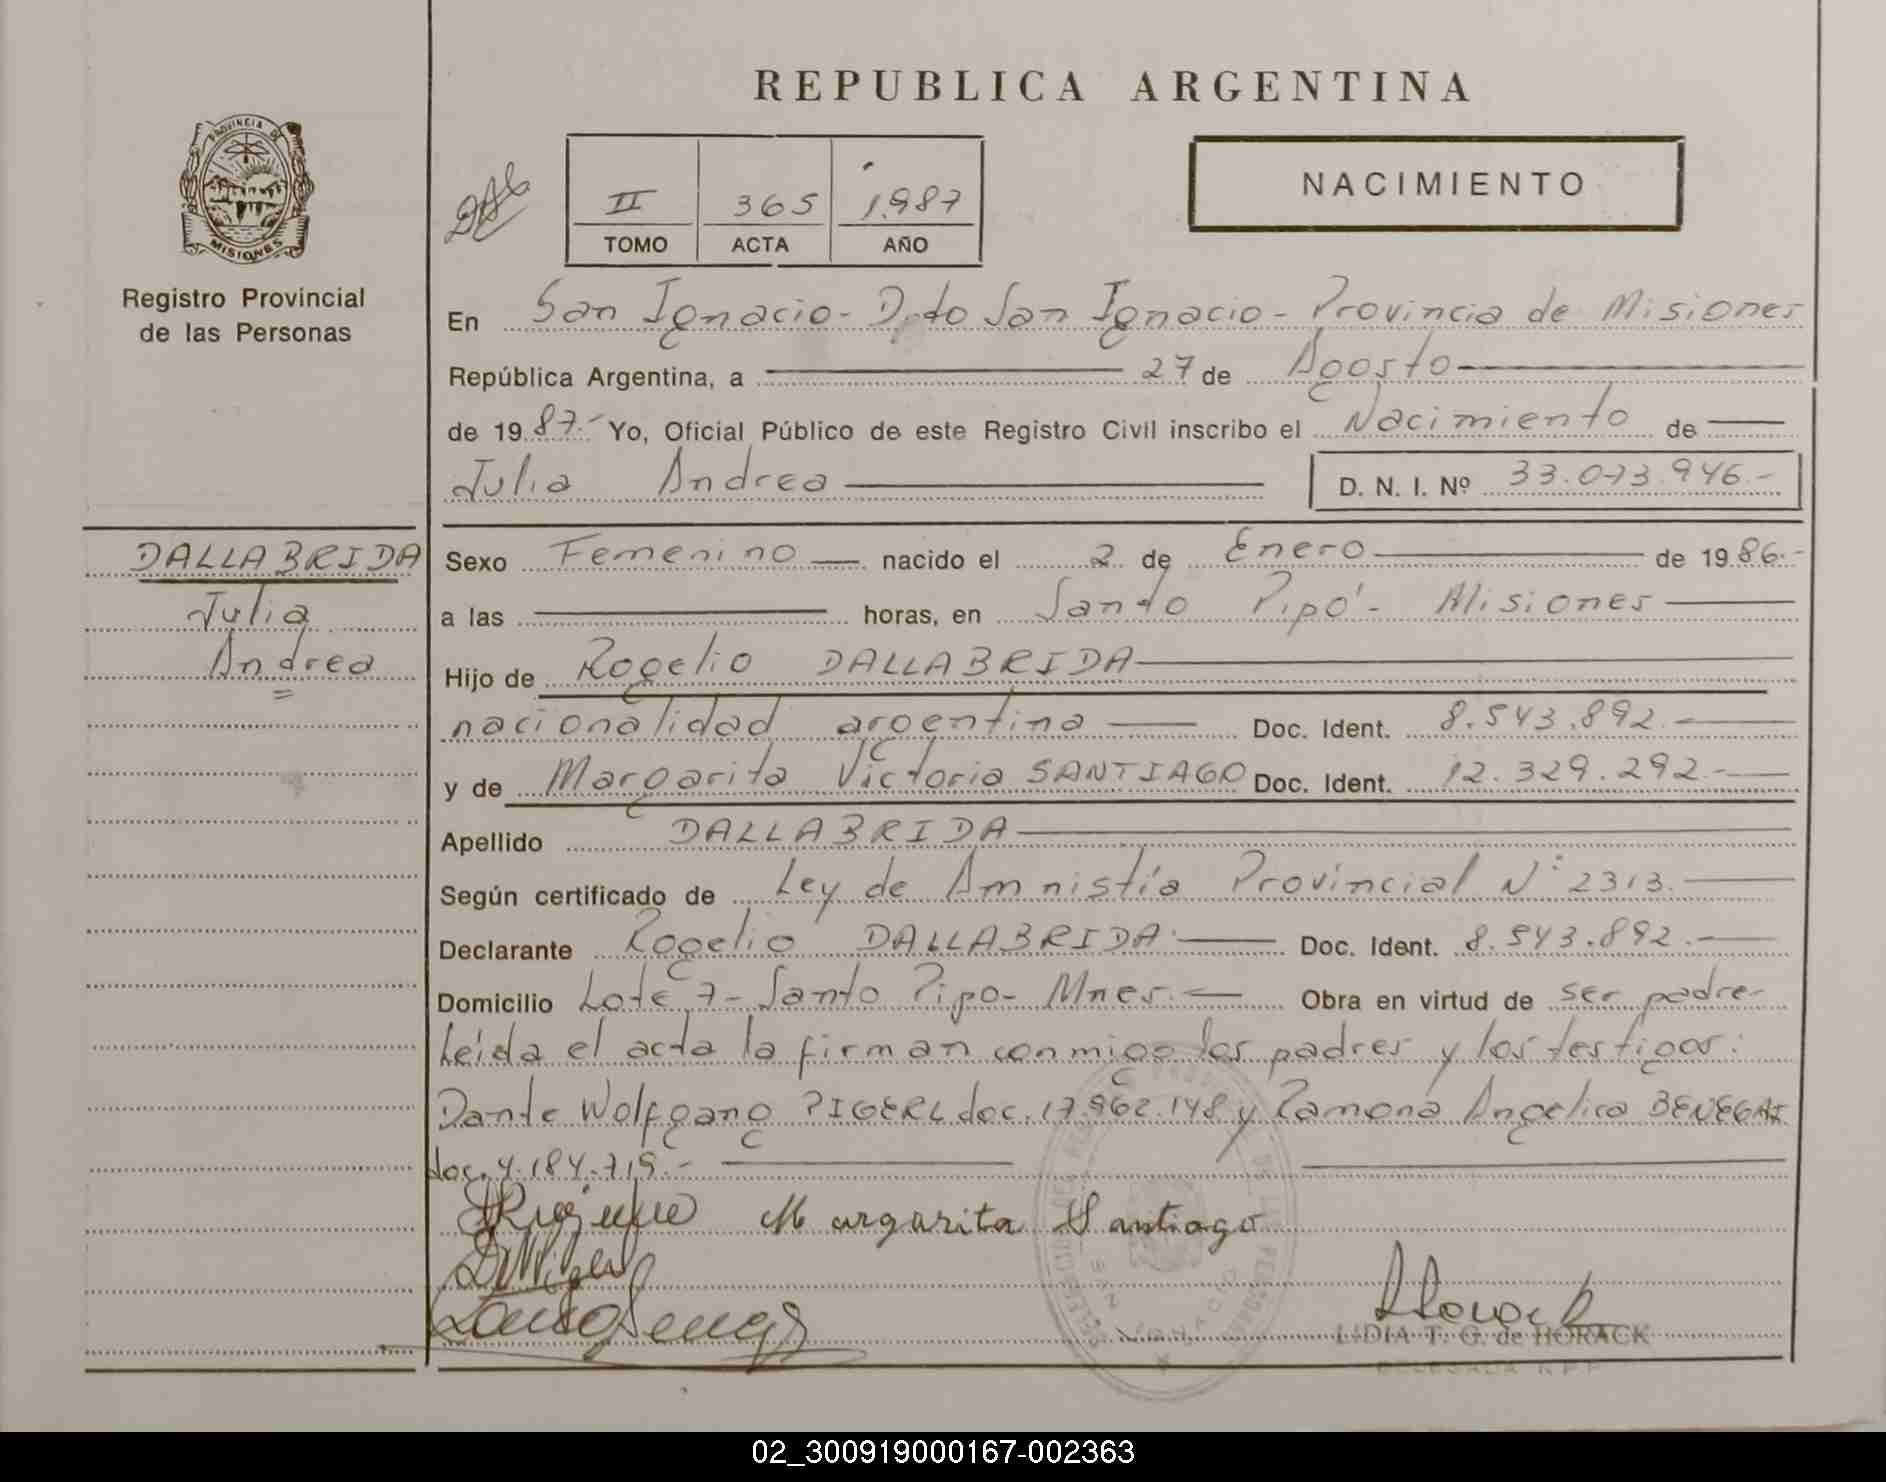 REPUBLICA ARGENTINA
PROVINCIA DE
MISIONES
Registro Provincial
de las Personas
II 365 1.987
TOMO ACTA AÑO
NACIMIENTO
En San Ignacio - Dpto San Ignacio - Provincia de Misiones
República Argentina, a 27 de Agosto
de 1987.- Yo, Oficial Público de este Registro Civil inscribo el Nacimiento de
Julia Andrea D. N. I. Nº 33.073.946.-
DALLABRIDA
Julia
Andrea
Sexo Femenino nacido el 2 de Enero de 1986.-
a las horas, en Santo Pipó - Misiones
Hijo de Rogelio DALLABRIDA
nacionalidad argentina Doc. Ident. 8.543.892.-
y de Margarita Victoria SANTIAGO Doc. Ident. 12.329.292.-
Apellido DALLABRIDA
Según certificado de Ley de Amnistía Provincial Nº 2313.-
Declarante Rogelio DALLABRIDA Doc. Ident. 8.543.892.-
Domicilio Lote 7 - Santo Pipo - Mnes.- Obra en virtud de ser padre-
Leída el acta la firman conmigo los padres y los testigos:
Dante Wolfgang PIGERL doc. 17.962.148 y Ramona Angelica BENEGAS
doc. 4.184.715.-
Margarita Santiago
LIDIA T. G. de HORACK
DELEGADA R P P
02_300919000167-002363